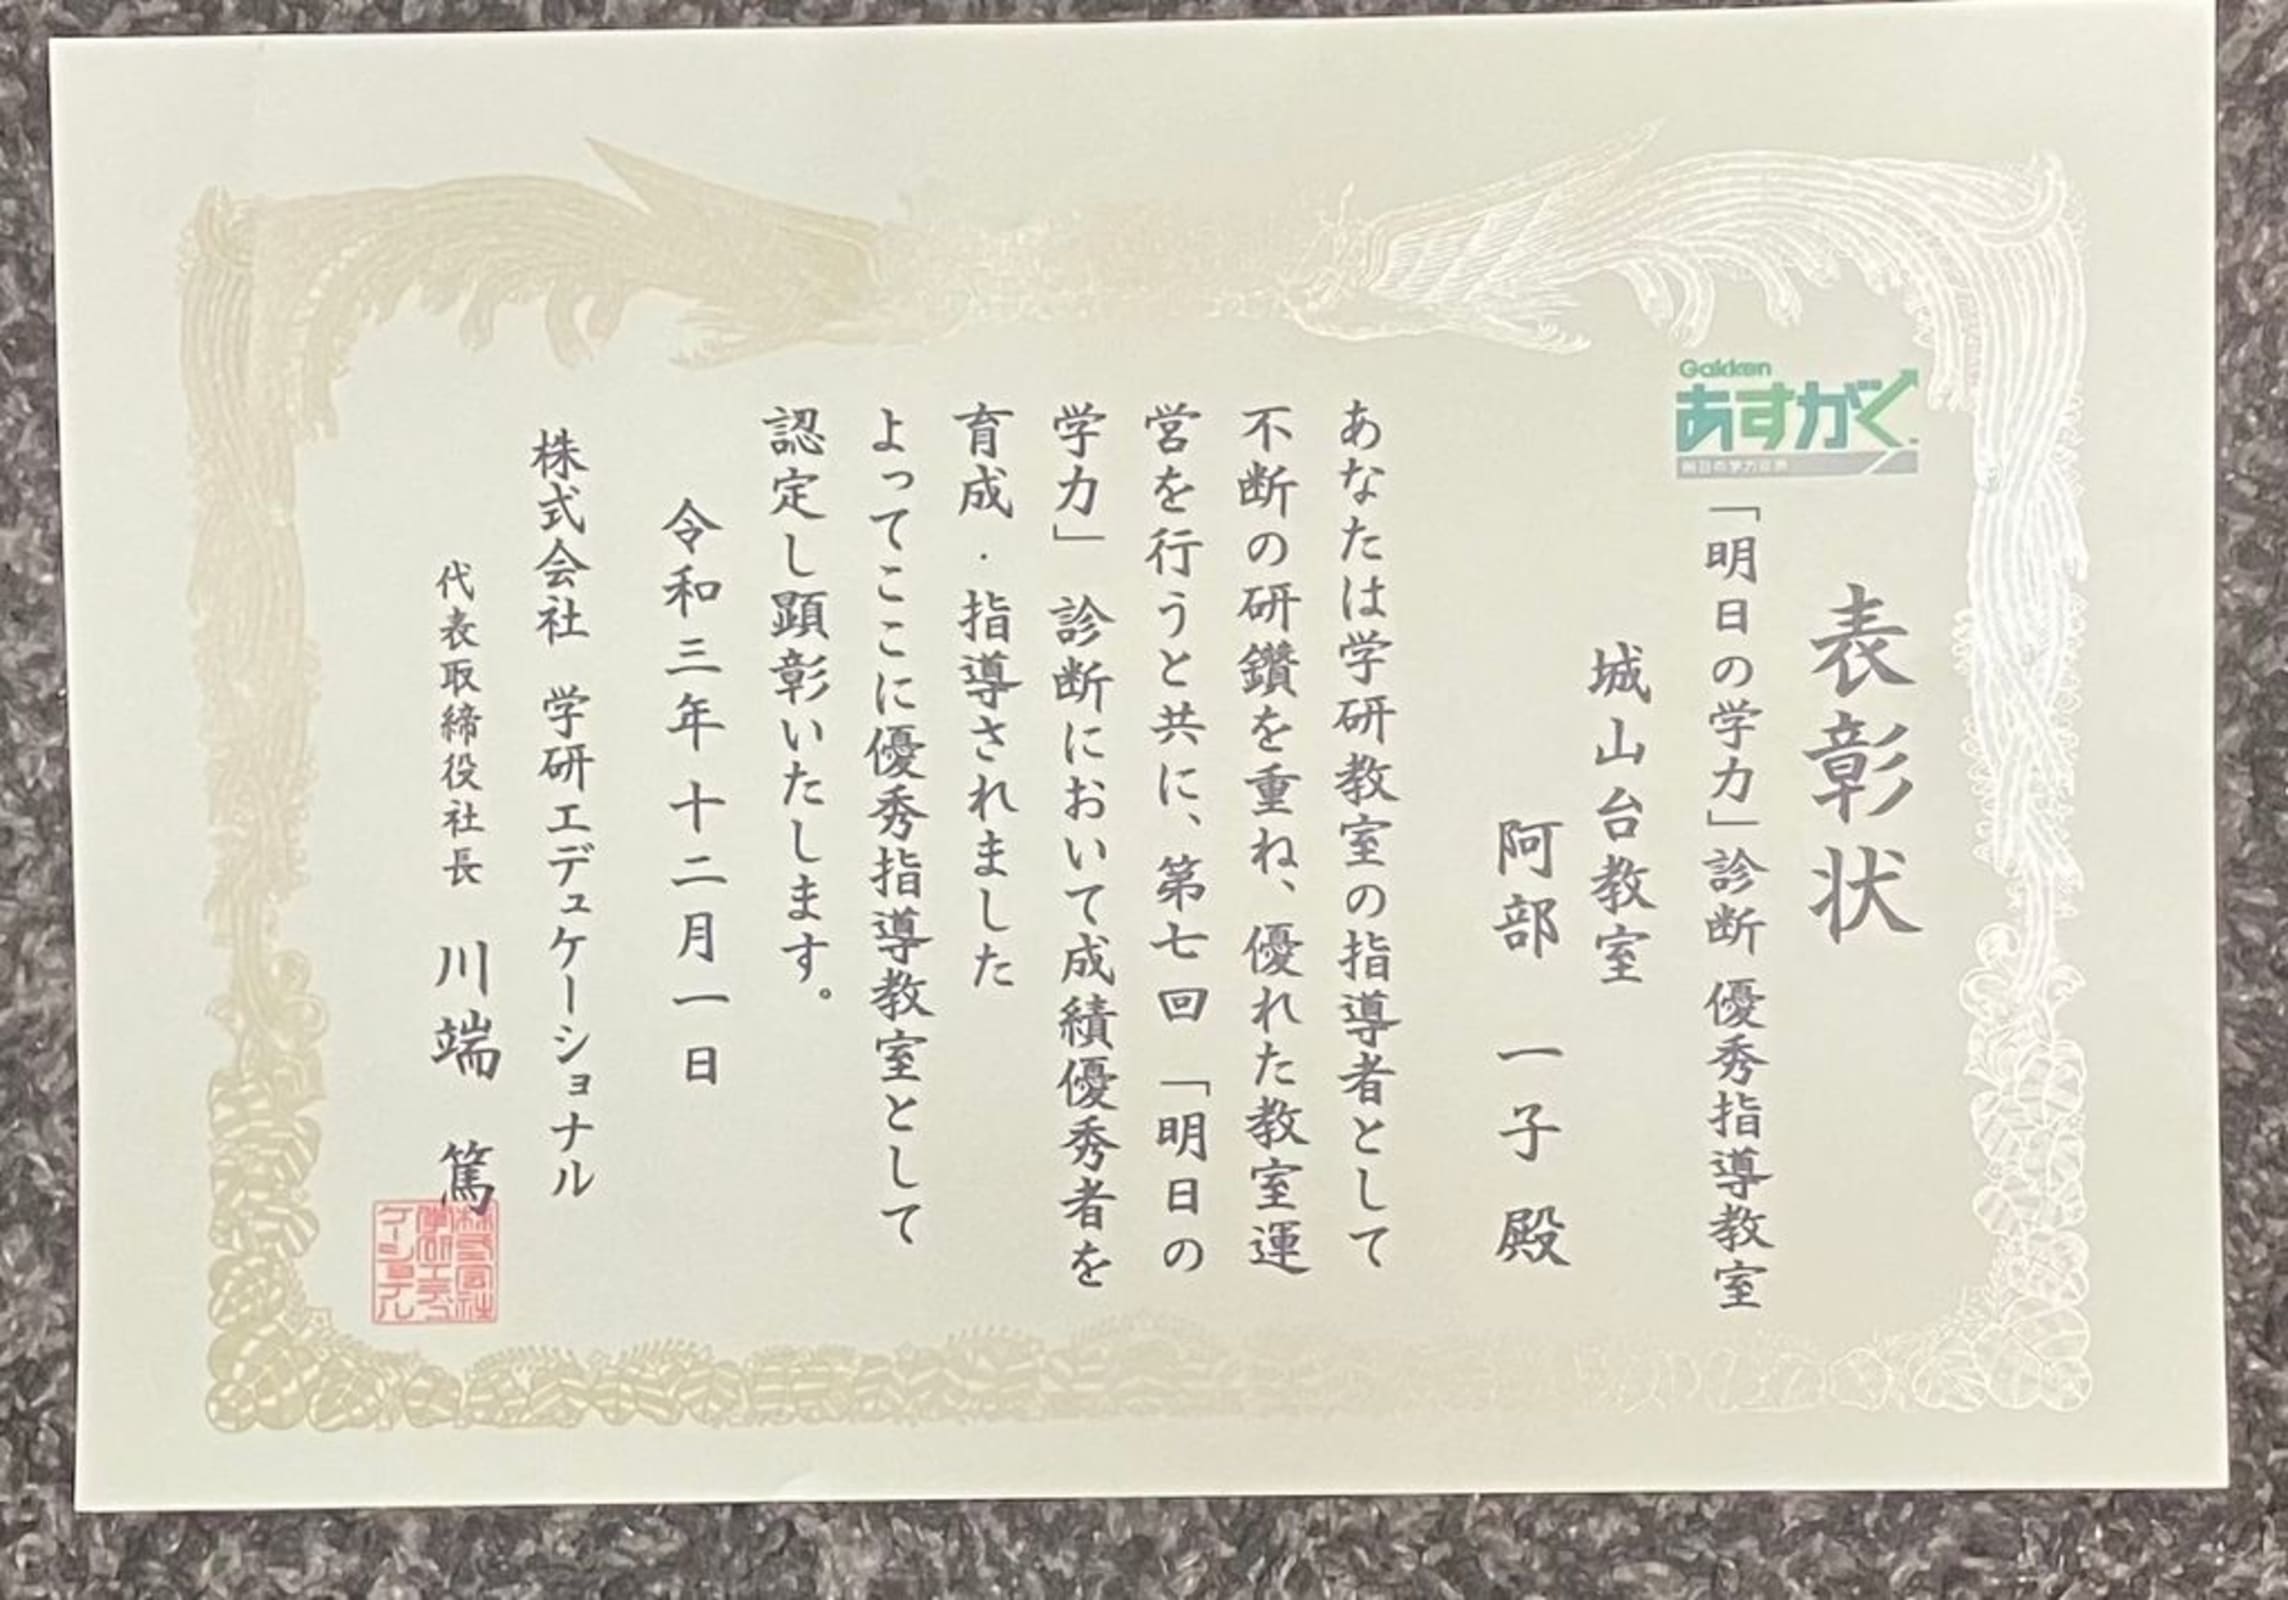 表彰状
Gakken
あすがく
「明日の学力」診断 優秀指導教室
城山台教室
阿部 一子 殿
あなたは学研教室の指導者として
不断の研鑽を重ね、優れた教室運
営を行うと共に、第七回 「明日の
学力」 診断において成績優秀者を
育成・指導されました
よってここに優秀指導教室として
認定し顕彰いたします。
令和三年十二月一日
株式会社 学研エデュケーショナル
代表取締役社長 川端 篤
株式会社
学研エデュ
ケーショナル